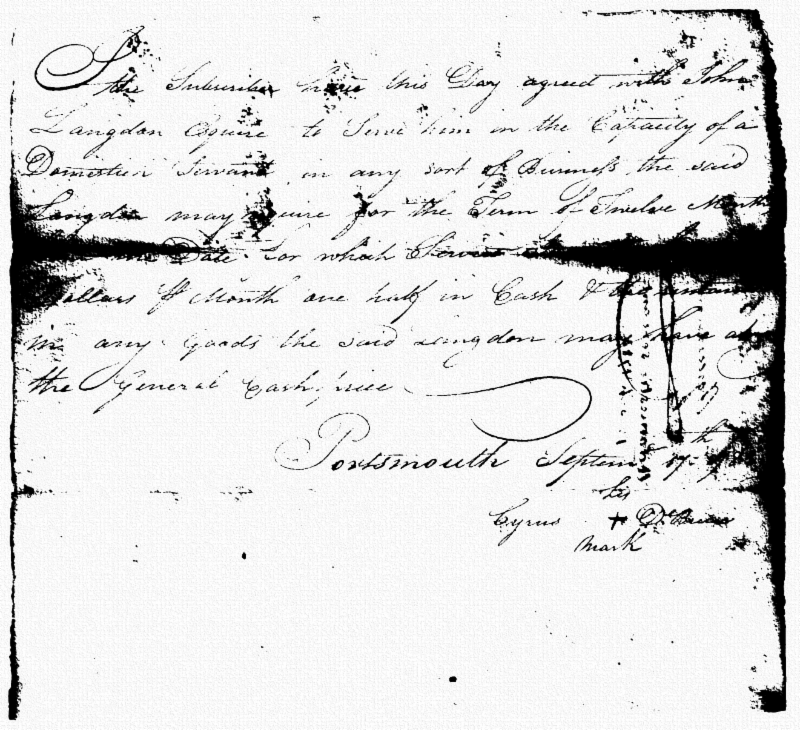 I
the Subscriber have this Day agreed with John
Langdon Esquire to Serve him in the Capacity of a
Domestick Servant in any sort of Business the said
Langdon may require for the Term of Twelve Months
Date. for which Service
Dollars Pr Month one half in Cash & the
in any Goods the said Langdon may have at
the General Cash price
Portsmouth Septem 17th
his
Cyrus + De Bruce
mark